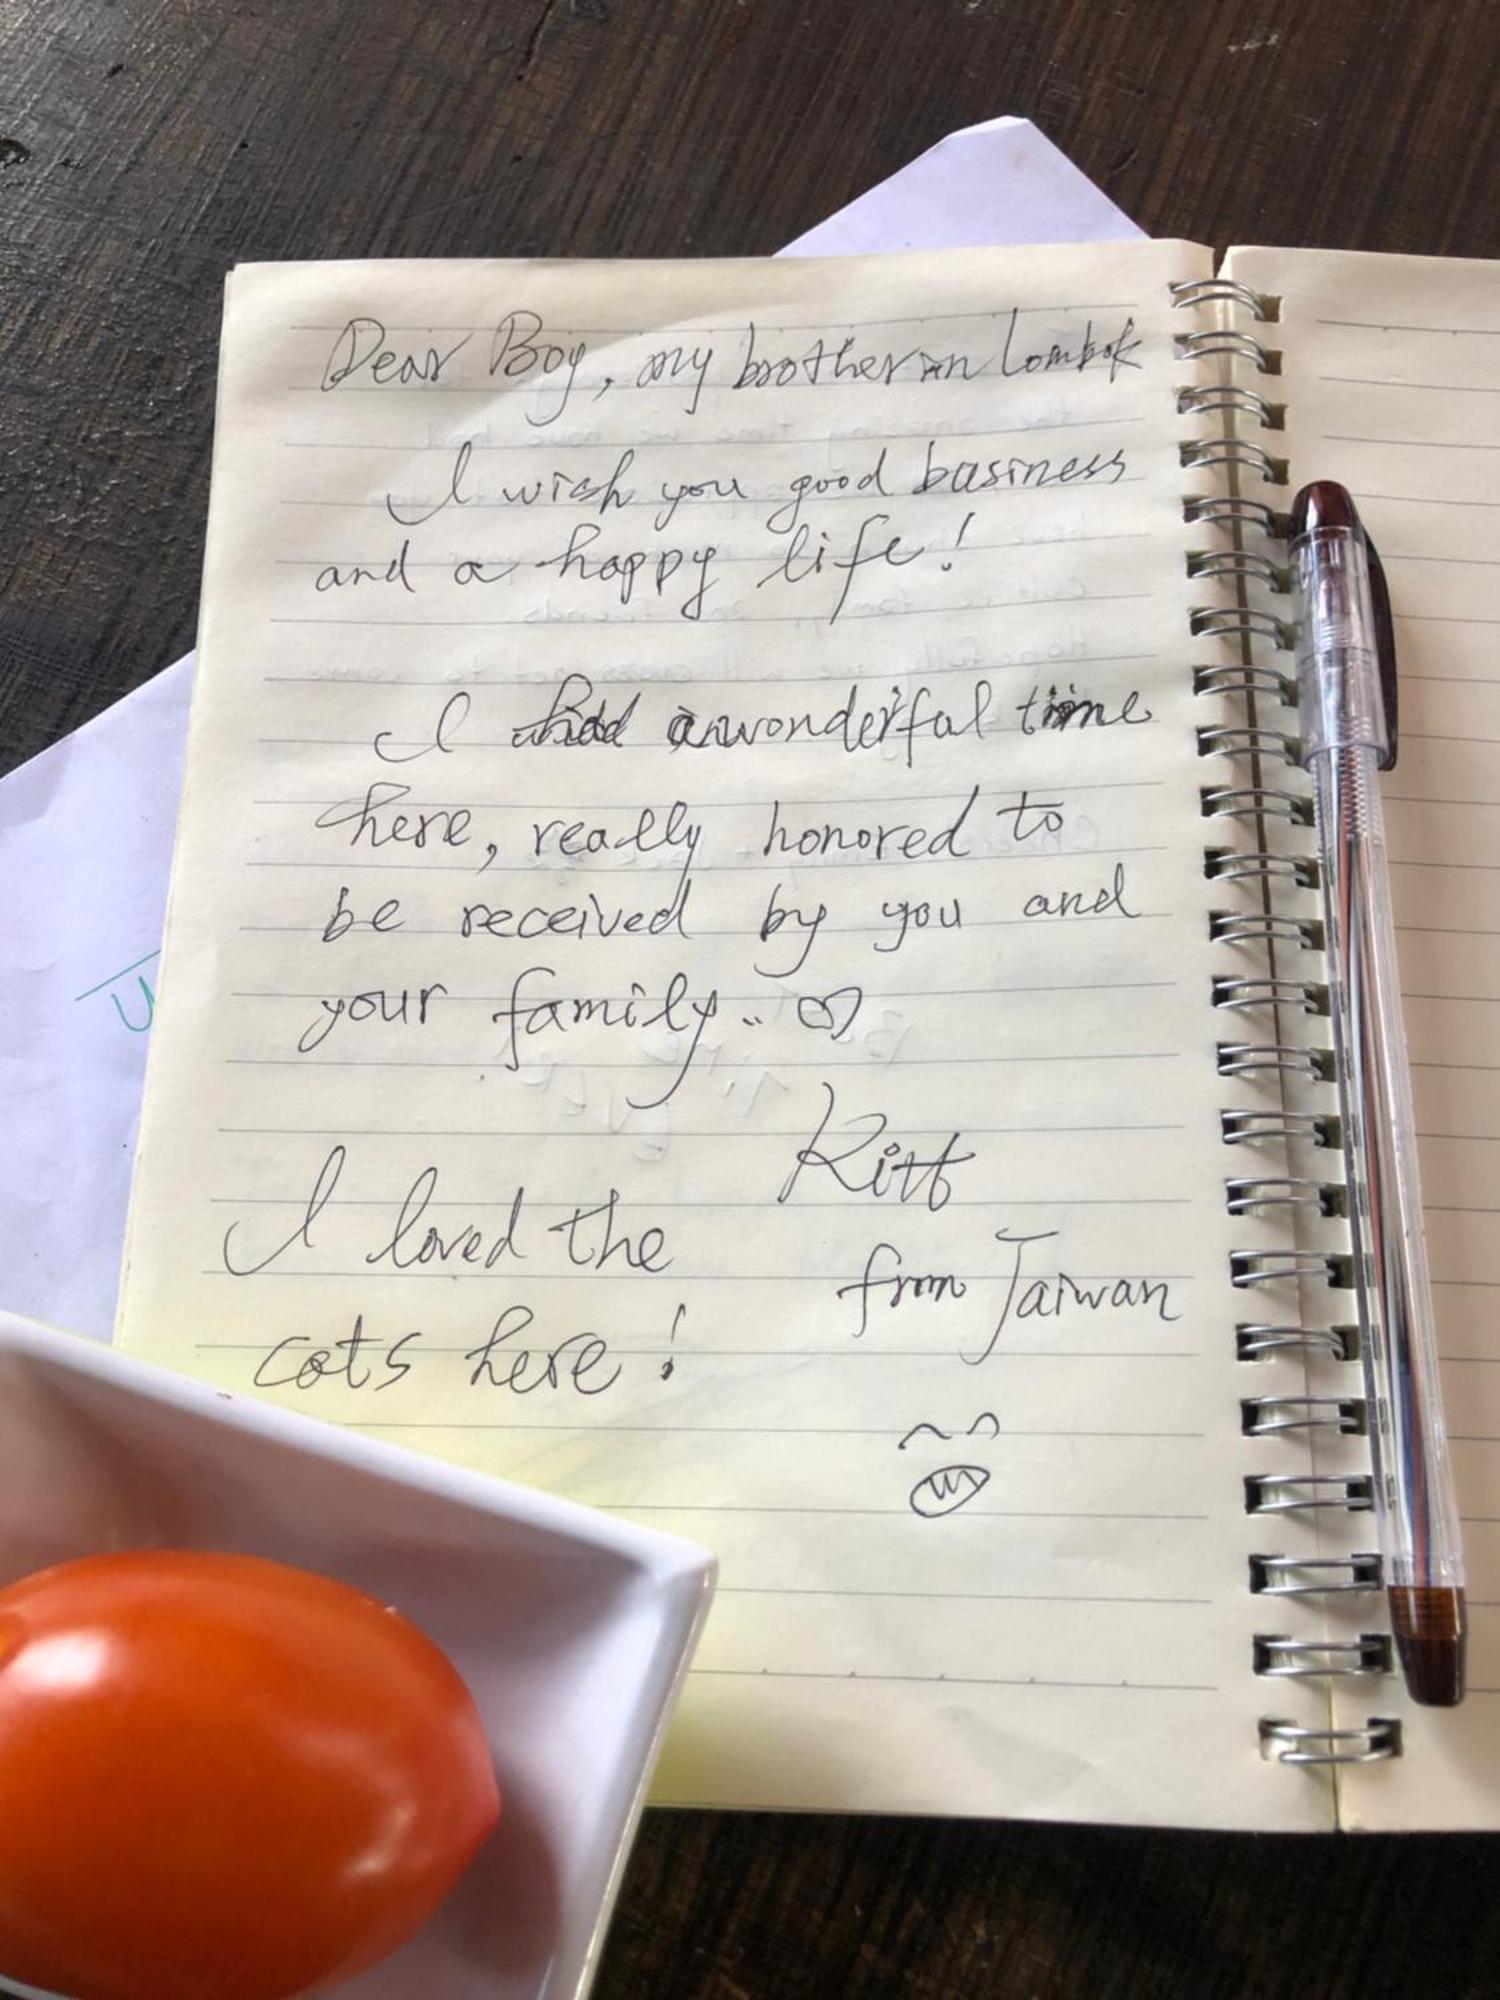 Dear Boy, my brother in Lombok
I wish you good business
and a happy life!
I had a wonderful time
here, really honored to
be received by you and
your family.. ♡
Kitt
from Taiwan
I loved the
cats here!